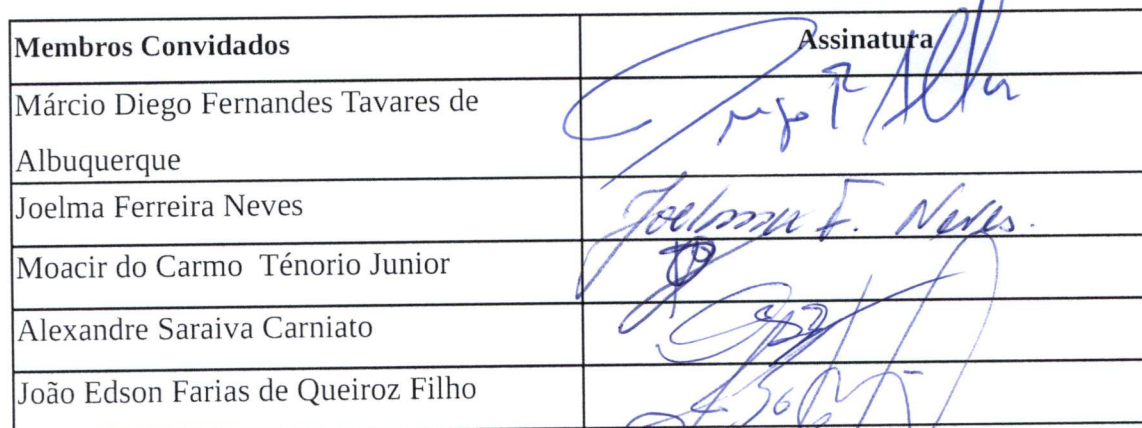 Membros Convidados Assinatura
Márcio Diego Fernandes Tavares de
Albuquerque
Joelma Ferreira Neves Joelma F. Neves.
Moacir do Carmo Ténorio Junior
Alexandre Saraiva Carniato
João Edson Farias de Queiroz Filho